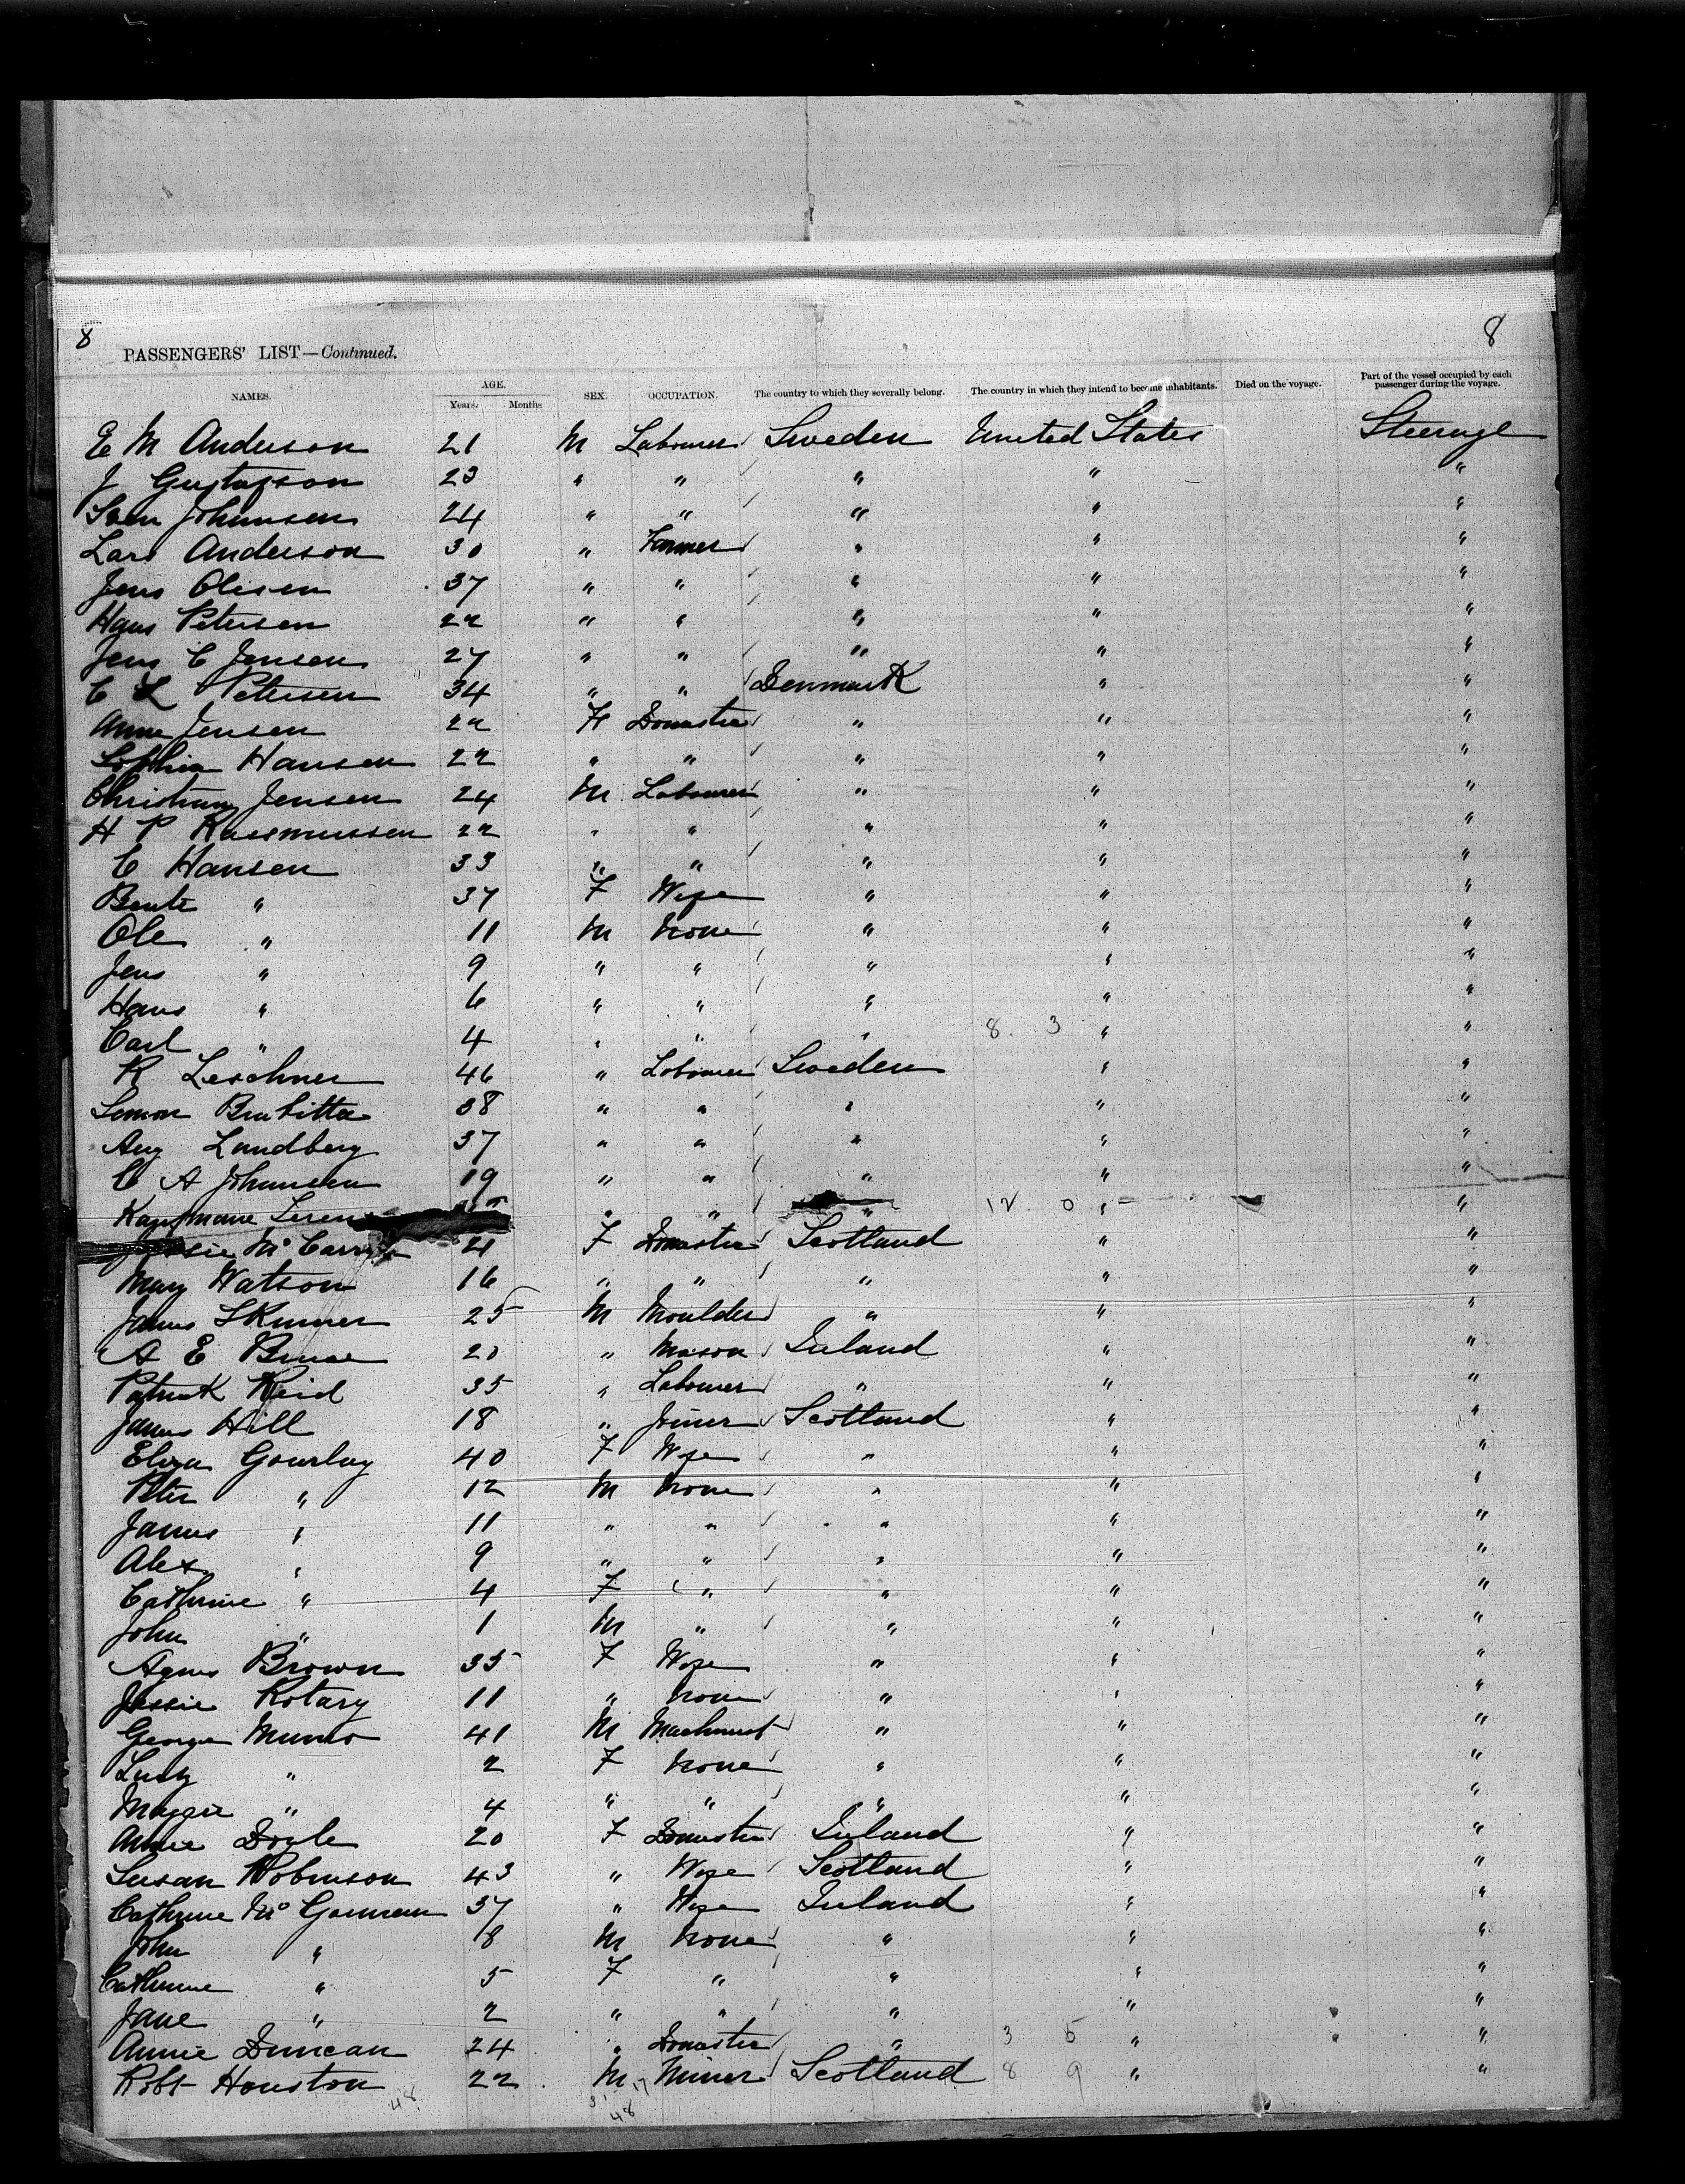 8 8
PASSENGERS' LIST—Continued.
NAMES. AGE. Years. Months SEX. OCCUPATION. The country to which they severally belong. The country in which they intend to become inhabitants. Died on the voyage. Part of the vessel occupied by each passenger during the voyage.
E M Anderson 21 M Labourer Sweden United States Steerage
J Gustafson 23 " " " " "
Sven Johansen 24 " " " " "
Lars Anderson 30 " Farmer " " "
Jens Olesen 37 " " " " "
Hans Petersen 22 " " " " "
Jens C Jensen 27 " " " " "
C L Petersen 34 " " Denmark " "
Anne Jensen 22 F Domestic " " "
Sophia Hansen 22 " " " " "
Christian Jensen 24 M Labourer " " "
H P Rasmussen 22 " " " " "
C Hansen 33 " " " " "
Bente " 37 F Wife " " "
Ole " 11 M None " " "
Jens " 9 " " " " "
Hans " 6 " " " " "
Carl " 4 " " " 8. 3 " "
R Leschner 46 " Labourer Sweden " "
38 " " " " "
Aug Lundberg 37 " " " " "
C A Johansen 19 " " " " "
" " " 12. 0 " "
Jessie Mc F Domestic Scotland " "
Mary Watson 16 " " " " "
James Skinner 25 M Moulder " " "
A E Bruce 20 " Mason Ireland " "
Patrick Reid 35 " Labourer " " "
James Hill 18 " Joiner Scotland " "
Eliza Gourlay 40 F Wife " " "
Peter " 12 M None " " "
James " 11 " " " " "
Alex " 9 " " " " "
Catherine " 4 F " " " "
John " 1 M " " " "
Agnes Brown 35 F Wife " " "
Jessie Rotary 11 " None " " "
George Munro 41 M Machinist " " "
Lucy " 2 F None " " "
Maggie " 4 " " " " "
Annie Doyle 20 F Domestic Ireland " "
Susan Robinson 43 " Wife Scotland " "
Catherine McGorman 37 " Wife Ireland " "
John " 8 M None " " "
Catherine " 5 F " " " "
Jane " 2 " " " " "
Annie Duncan 24 " Domestic " 3 5 " "
Robt Houston 22 M Miner Scotland 8 9 " "
48 31 17
48